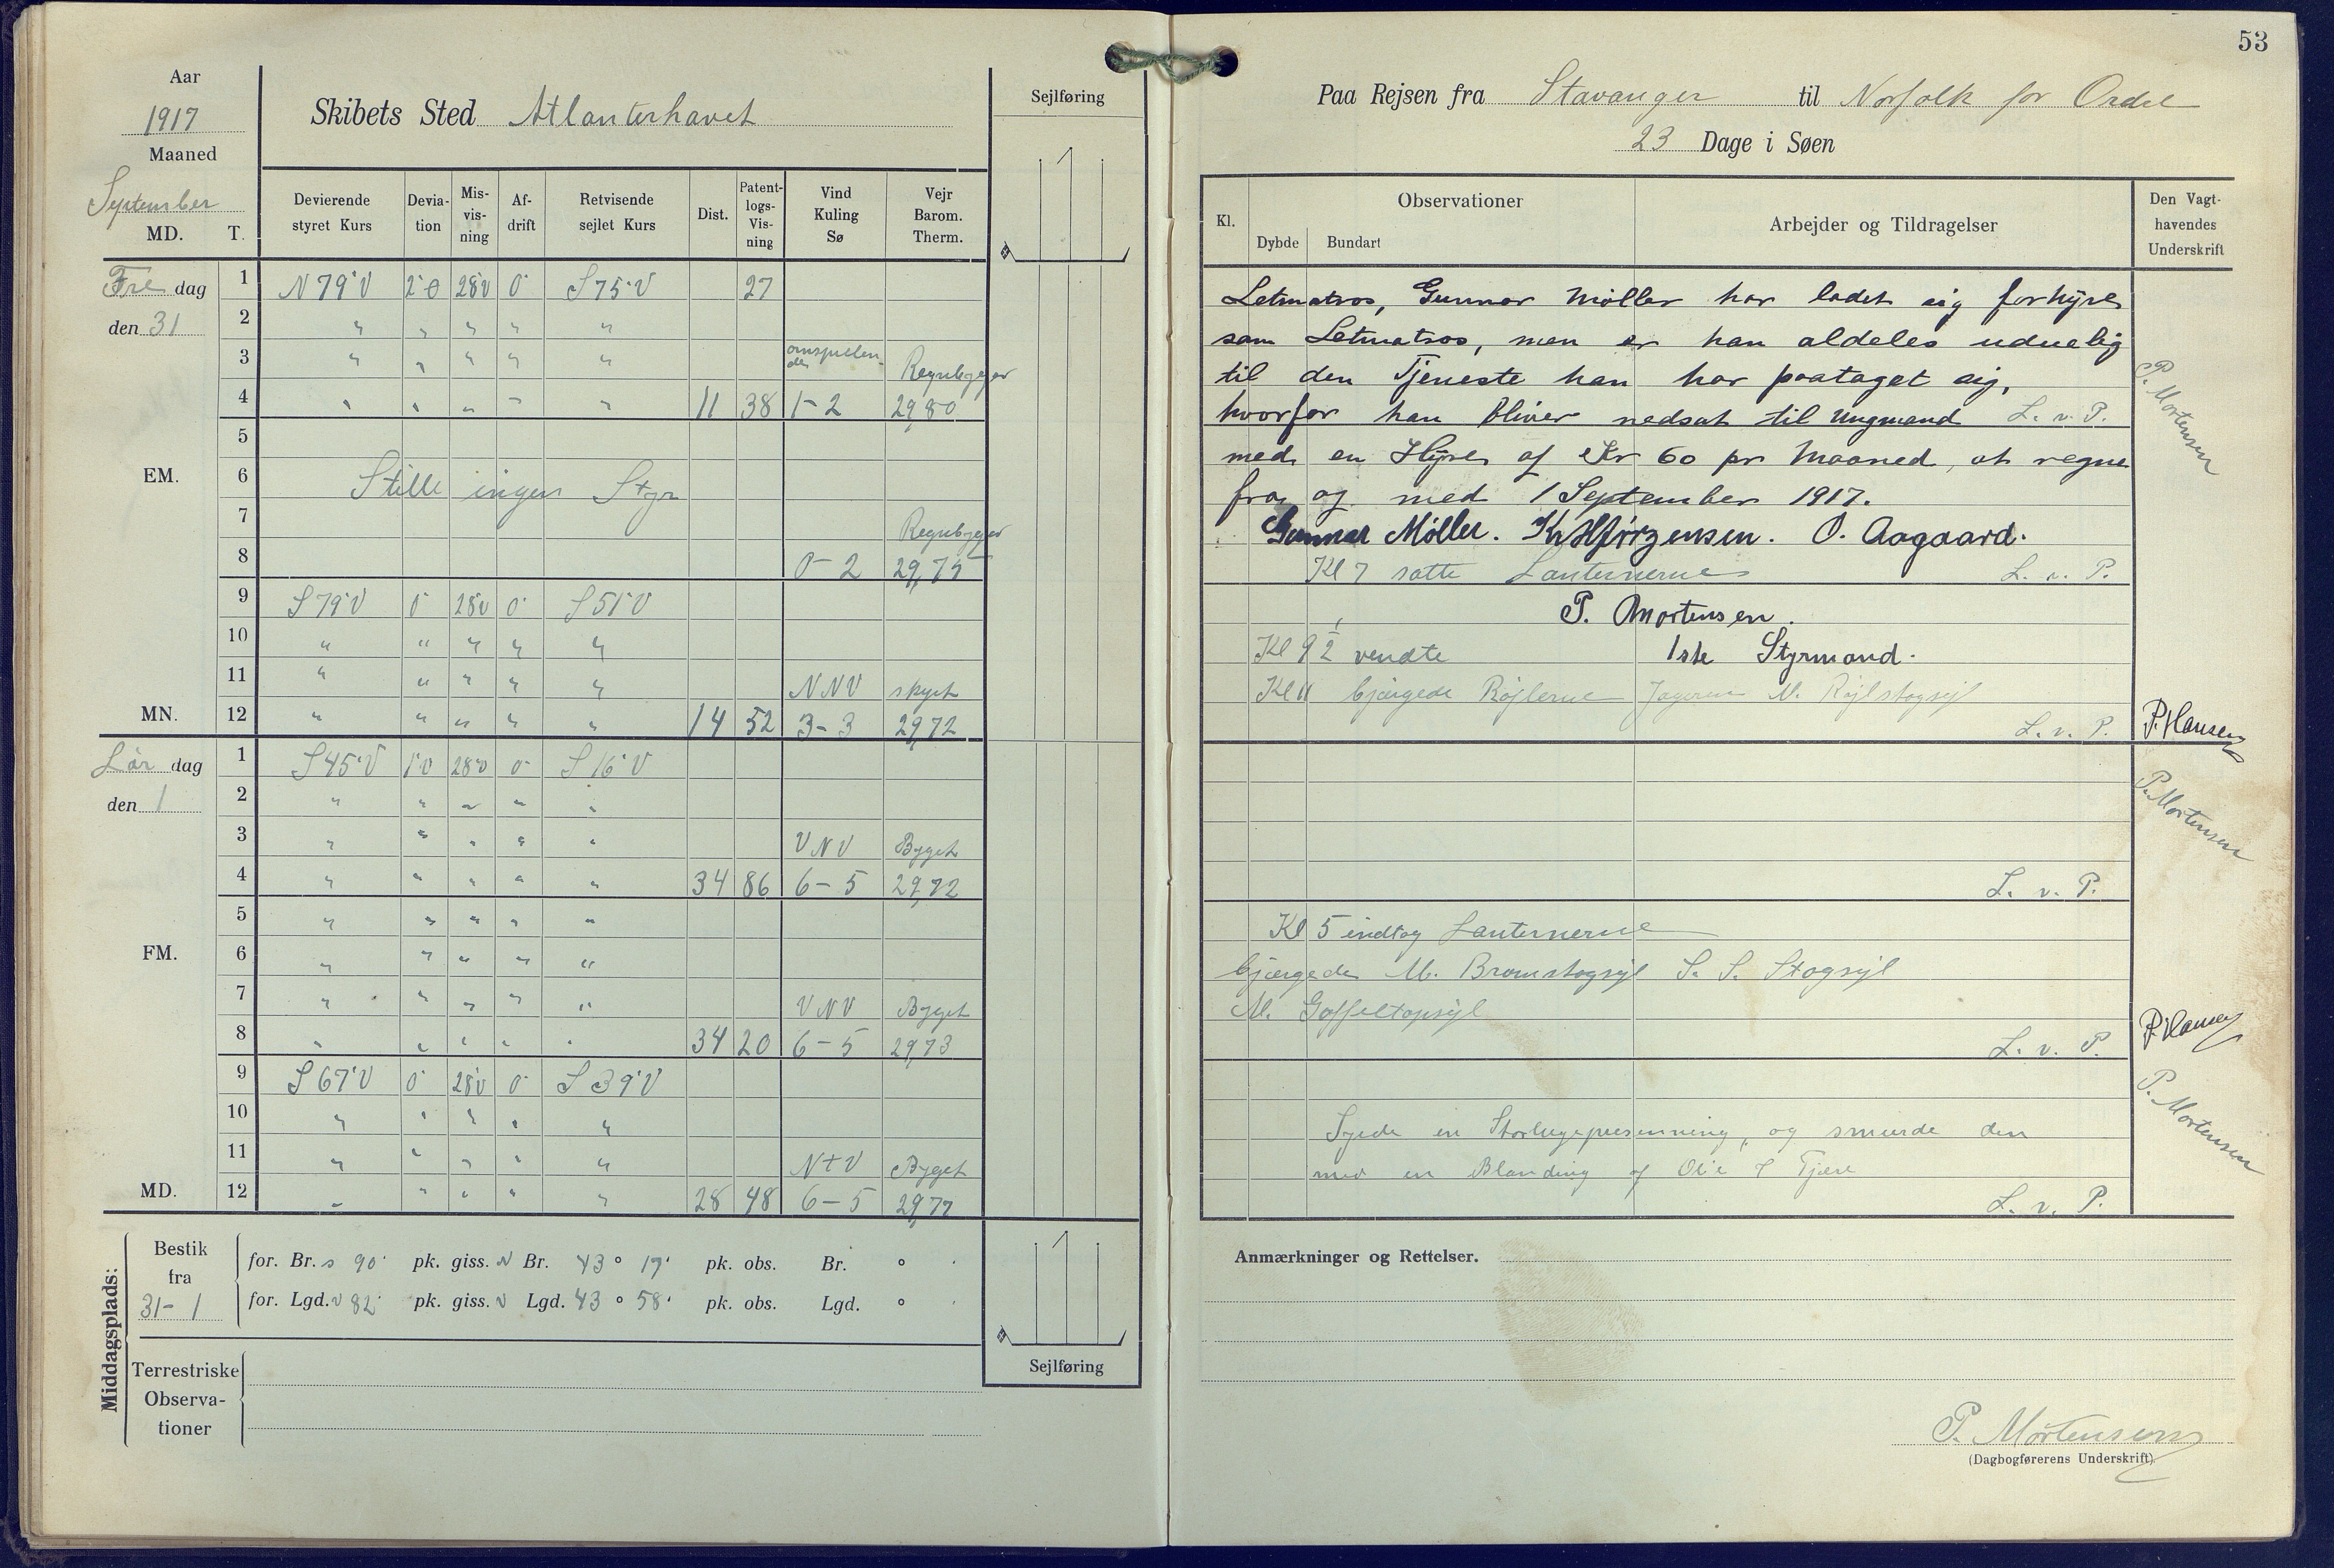 Aar
1917
Maaned
September
MD. T.
Skibets Sted Atlanterhavet
Sejlføring
Devierende styret Kurs | Deviation | Misvisning | Afdrift | Retvisende sejlet Kurs | Dist. | Patentlogs-Visning | Vind Kuling Sø | Vejr Barom. Therm.
Fredag den 31
1 N 79° V 2° Ø 28° V 0° S 75° V 27
2 " " " " "
3 " " " " " omspillende Regnbyger
4 " " " " " 11 38 1-2 29,80
5
EM. 6 Stille ingen Styr
7 Regnbyger
8 0-2 29,75
9 S 79° V 0° 28° V 0° S 51° V
10 " " " " "
11 " " " " " NNV skyet
MN. 12 " " " " " 14 52 3-3 29,72
Lördag den 1
1 S 45° V 1° V 28° V 0° S 16° V
2 " " " " "
3 " " " " " VNV Byget
4 " " " " " 34 86 6-5 29,72
5 " " " " "
FM. 6 " " " " "
7 " " " " " VNV Byget
8 " " " " " 34 20 6-5 29,73
9 S 67° V 0° 28° V 0° S 39° V
10 " " " " "
11 " " " " " NtV Byget
MD. 12 " " " " " 28 48 6-5 29,77
Middagsplads:
Bestik fra 31-1
for. Br. S 90' pk. giss. N Br. 43° 17' pk. obs. Br. ° '
for. Lgd. V 82' pk. giss. V Lgd. 43° 58' pk. obs. Lgd. ° '
Terrestriske Observationer
Sejlføring
53
Paa Rejsen fra Stavanger til Norfolk for Ordre
23 Dage i Søen
Kl. | Observationer | Dybde | Bundart | Arbejder og Tildragelser | Den Vagthavendes Underskrift
Letmatros, Gunnar Møller har ladet sig forhyre
som Letmatros, men er han aldeles uduelig
til den Tjeneste han har paataget sig,
hvorfor han bliver nedsat til Ungmand L. v. P.
P. Mortensen
med en Hyre af Kr 60 pr Maaned, at regne
fra og med 1 September 1917.
Gunnar Møller. K. Hjörgensen. O. Aagaard.
Kl 7 satte Lanternerne L. v. P.
P. Mortensen.
Kl 9½ vendte 1ste Styrmand.
Kl 11 bjærgede Röjlerne Jageren M. Röjlstagsejl
L. v. P. P. Hansen
P. Mortensen
L. v. P.
Kl 5 indtog Lanternerne
bjærgede M. Bramstagsejl S. S. Stagsejl
M. Gaffeltopsejl
L. v. P. P. Hansen
P. Mortensen
Syede en Storlugepresenning, og smurde den
med en Blanding af Olie & Tjære
L. v. P.
Anmærkninger og Rettelser.
P. Mortensen
(Dagbogførerens Underskrift)